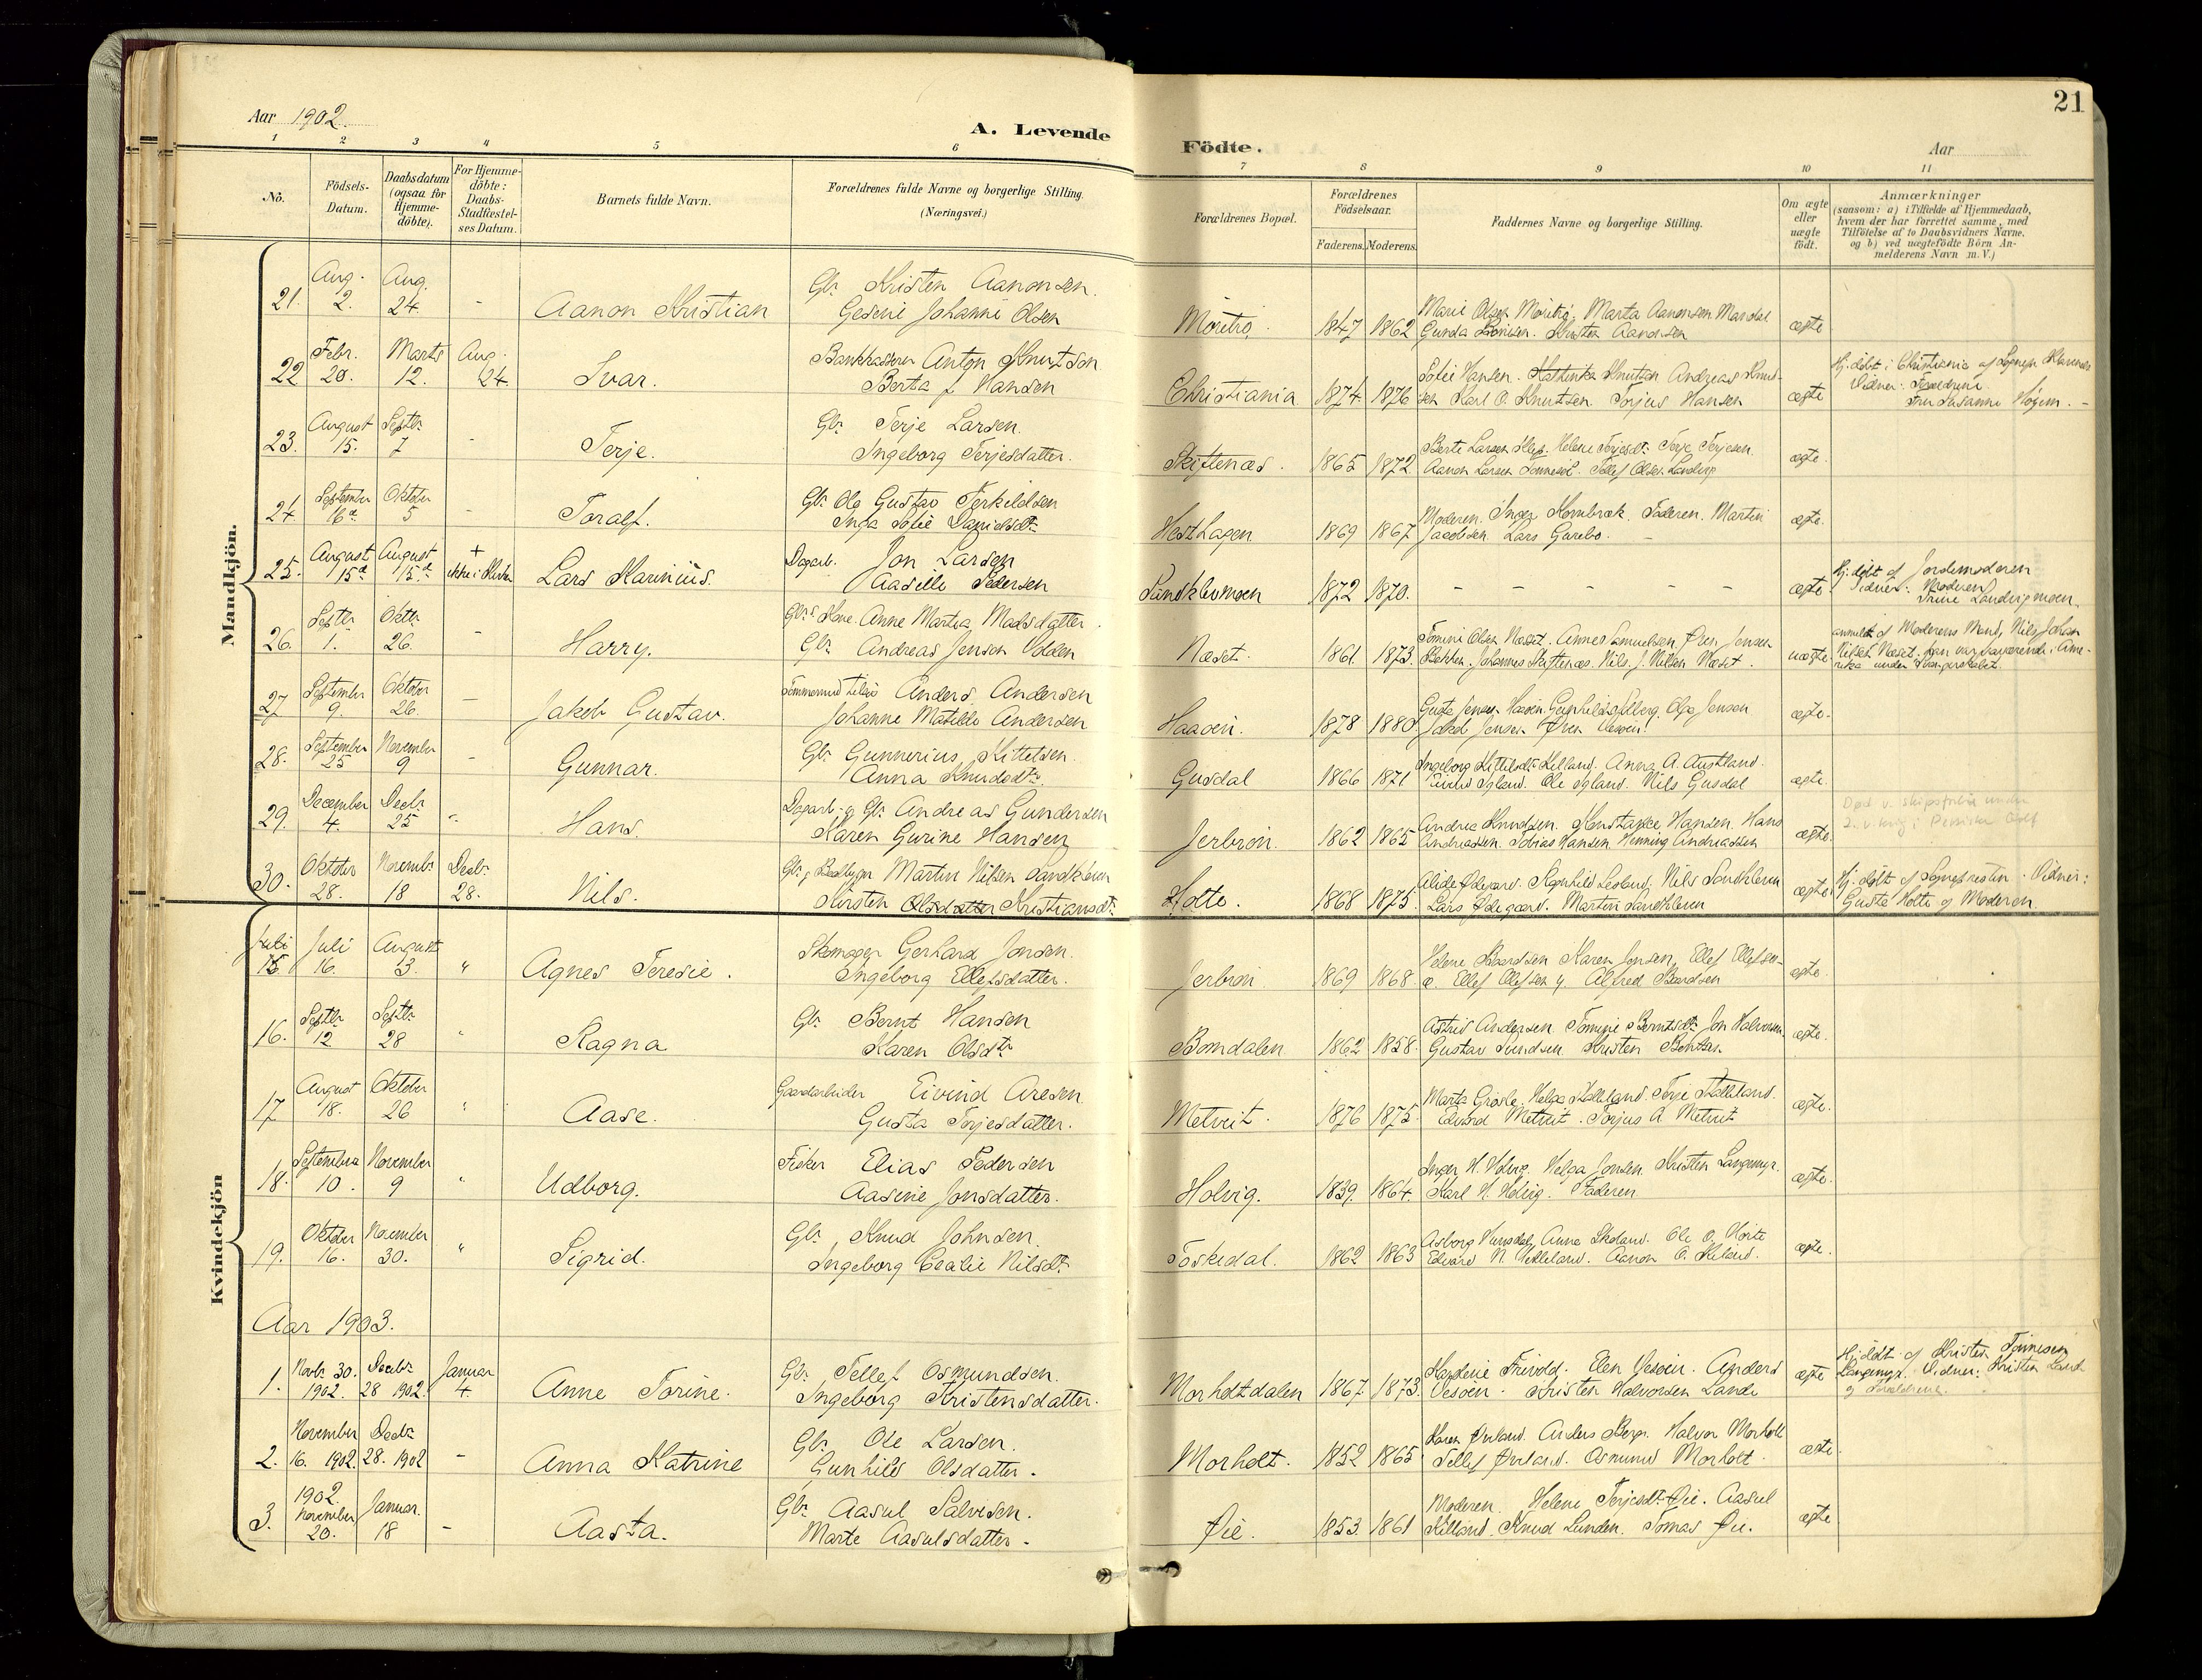 21
Aar 1902.
A. Levende
Födte.
Aar
1 2 3 4 5 6 7 8 9 10 11
No.
Födsels-
Datum.
Daabsdatum
(ogsaa for
Hjemme-
döbte).
For Hjemme-
döbte:
Daabs-
Stadfæstel-
ses Datum.
Barnets fulde Navn.
Forældrenes fulde Navne og borgerlige Stilling.
(Næringsvei.)
Forældrenes Bopæl.
Forældrenes
Födselsaar.
Faderens.
Moderens.
Faddernes Navne og borgerlige Stilling.
Om ægte
eller
uægte
födt.
Anmærkninger
(saasom: a) i Tilfælde af Hjemmedaab,
hvem der har forrettet samme, med
Tilföielse af to Daabsvidners Navne,
og b) ved uægtefödte Börn An-
melderens Navn m. V.)
Mandkjön.
21. Aug. 2. Aug. 24. - Aanon Kristian
Gbr. Kristen Aanonsen.
Gesine Johanne Olsen
1847 1862
Marta Aanonsen Mandal
Kristen Aanonsen
ægte
22 Febr. 20. Marts 12. Aug. 24. Ivar.
Bankkasserer Anton Knutson
Berta f. Hansen
Christiania 1874. 1876
Sofie Hansen. Kathinka Knutson Andreas Knut-
sen Karl O. Knutsen. Torjus Hansen
ægte
Hj. döbt i Christiania af Sognepr.
Vidner: Forældrene.
Fru Susanne
23. August 15. Septbr. 7 - Terje.
Gbr. Terje Larsen.
Ingeborg Terjesdatter.
Skiftenæs. 1865 1872.
Helene Terjesdt. Terje Terjesen.
Aanon Larsen Tellef Olsen
ægte.
24. September 16de Oktober 5 - Toralf.
Gbr. Ole Gustav Terkildsen
Inga Sofie Davidsdt.
Hesthagen 1869 1867
Moderen. Inger Kornbræk. Faderen. Martin
Jacobsen. Lars Garebo.
ægte.
25. August 15de August 15de + ikke i Kirken Lars Marinius.
Dagarb. Jon Larsen
Aasille Pedersen
Sandkleivmoen 1872 1870. - - - - -
ægte
Hj. döbt af Jordemoderen
Vidner: Moderen
Trine Landvigmoen.
26. Septbr. 1. Oktbr. 26. - Harry.
Gbr.s Kone Anne Martea Madsdatter.
Gbr. Andreas Jensen Udden
Næset. 1861. 1873.
Tomine Olsen Næset. Anne Samuelsen. Jensen
Bakken. Johannes Skiftenæs. Nils J. Nilsen Næset.
uægte
anmeldt af Moderens Mand, Nils Johan
Nilsen Næset. Han var fraværende i Ame-
rika under Svangerskabet.
27. September 9. Oktober 26. - Jakob Gustav.
Tömmermand tilsjös Anders Andersen
Johanne Matilde Andersen
Haaven. 1878 1880
Olga Jensen
Jakob Jensen
ægte.
28. September 25 November 9 - Gunnar.
Gbr. Gunnerius Kittelsen.
Anna Knudsdtr.
Gusdal 1866 1871
Ingeborg Kittilsdt. Anna A. Austland.
Ole Igland. Nils Gusdal
ægte.
29. December 4. Decbr. 25 Hans.
Dagarb. og Gbr. Andreas Gundersen
Karen Gurine Hansen
Jerbron. 1862 1865
Andrea Knudsen. Konstanse Hansen. Hans
Andreassen. Tobias Hansen. Henning Andreassen
ægte.
Död v. skipsforlis under
2. v.krig i Persiske Golf
30. Oktober 28. Novembr. 18 Decbr. 28. Nils.
Gbr. Martin Nilsen Sandkleiv
Kirsten Olsdatter Kristiansdt.
Holte. 1868 1875.
Nils Sandkleven
Lars Ödegaard. Martin Sandkleven
ægte
Hj. döbt af Sognepresten. Vidner:
Gusta Holte og Moderen.
Kvindekjön
15 Juli 16. August 3. " Agnes Teresie.
Skomager Gerhard Jensen.
Ingeborg Ellefsdatter.
Jerbron 1869 1868.
Helene Baardsen Karen Jensen, Ellef Ellefsen
Ellef Ellefsen y. Alfred Baardsen
ægte.
16. Septbr. 12 Septbr. 28 " Ragna
Gbr. Bernt Hansen
Karen Olsdtr.
Bomdalen 1862 1858.
Astrid Andersen. Tomine Berntsdt. Jon Halvorsen,
Gustav Kristen
ægte.
17 August 18. Oktober 26 " Aase.
Gaardarbeider Eivind Aresen
Gusta Terjesdatter.
Metveit. 1876 1875
Marta Helga Kalleland. Terje Kalleland.
Edvard Metveit. Torjus A. Metveit
ægte.
18. September 10. November 9 " Udborg.
Fisker Elias Pedersen
Aasine Jensdatter.
Holvig. 1839. 1864.
Inger H. Holvig. Helga Jensen. Kristen Langemyr.
Karl H. Holvig. Faderen.
ægte.
19. Oktober 16. November 30. " Sigrid.
Gbr. Knud Johnsen.
Ingeborg Cecilie Nilsdt.
Toskedal. 1862 1863
Anna Ole O. Horte
Edvard N. Aanon O.
ægte.
Aar 1903.
1. Novbr. 30. 1902. Decbr. 28 1902. Januar 4. Anne Torine.
Gbr. Tellef Osmundsen.
Ingeborg Kristensdatter.
Morholtdalen 1867 1873.
Frivold. Elen Vesöen. Anders
Vesöen. Kristen Halvorsen Lande
ægte
Hj. döbt af Kristen Tönnesen
Langemyr. Vidner: Kristen Lande
og Forældrene.
2. November 16. 1902. Decbr. 28. 1902 - Anna Katrine
Gbr. Ole Larsen.
Gunhild Olsdatter.
Morholt. 1852 1865
Karen Anders Berge. Halvor Morholt
Tellef Osmund Morholt.
ægte.
3. 1902. November 20. Januar. 18 - Aasta.
Gbr. Aasul Salvesen.
Marte Aasulsdatter.
Öie. 1853. 1861
Moderen. Helene Terjesdt. Öie. Aasul
Killand. Knud Lunden. Tomas Öie.
ægte